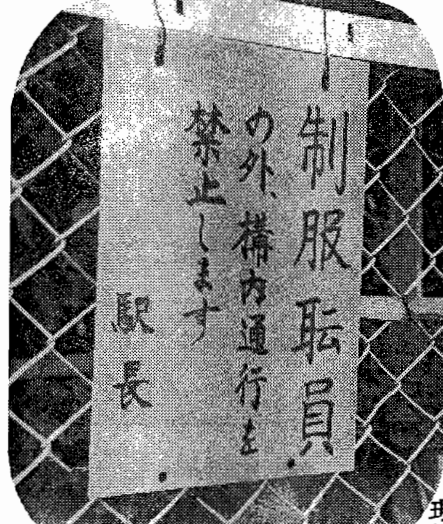 制服耺員
の外、構内通行を
禁止します
駅長